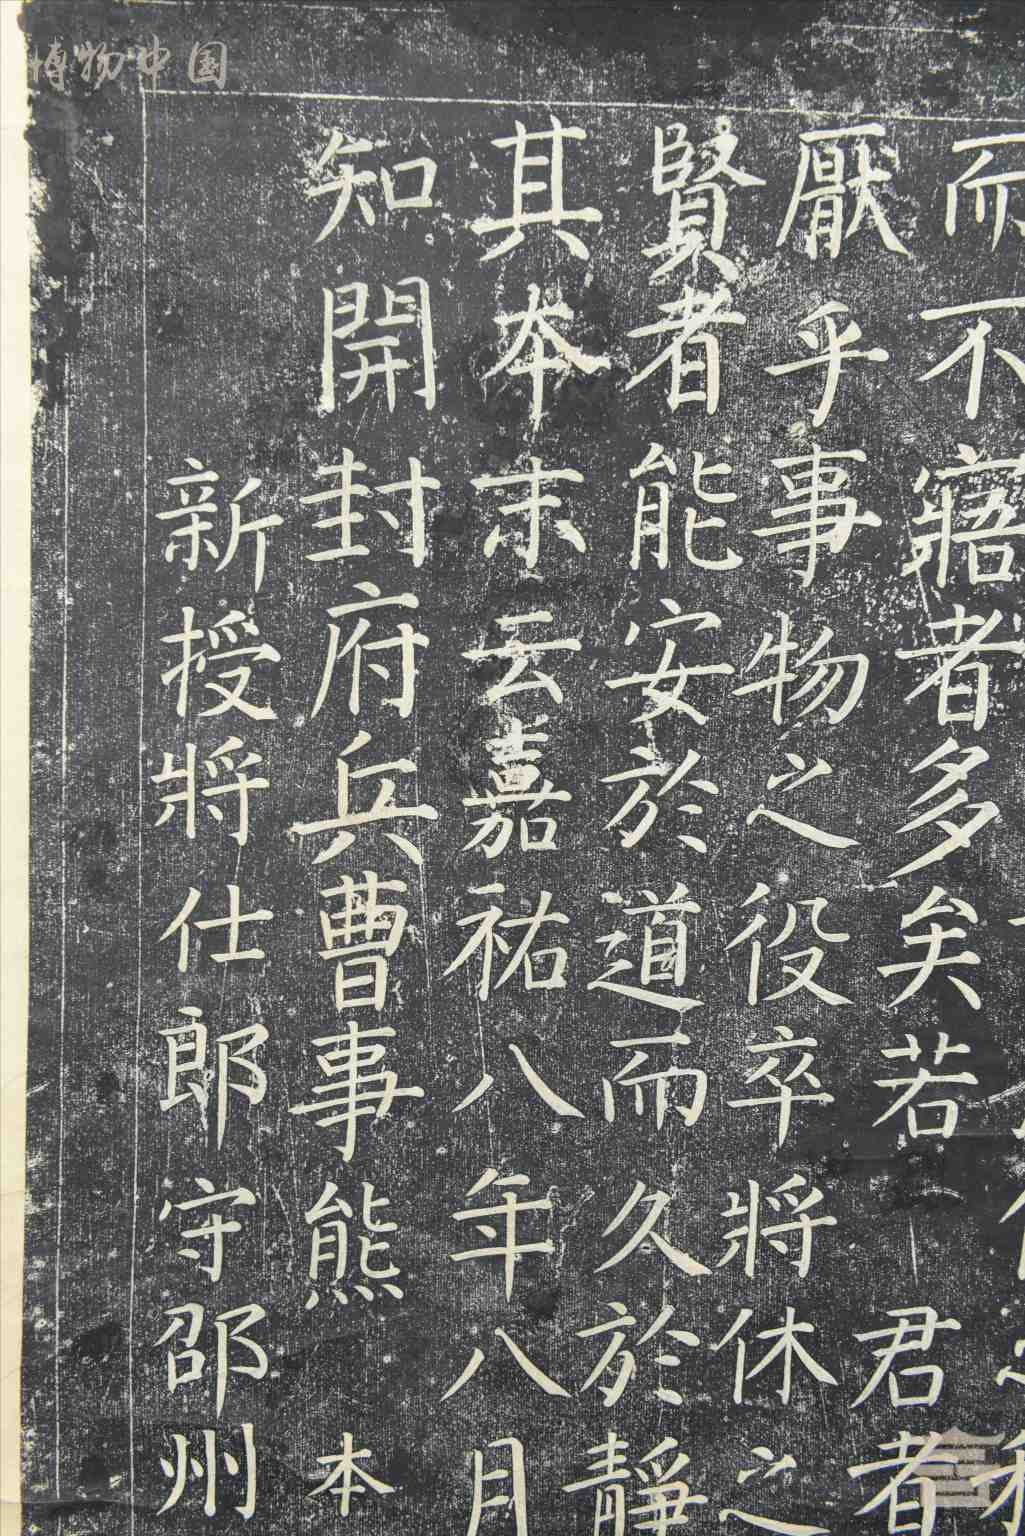 博物中国
而不寤者多矣若 君者
厭乎事物之役卒將休之
賢者能安於道而久於靜
其本末云嘉祐八年八月
知開封府兵曹事熊本
新授將仕郎守邵州